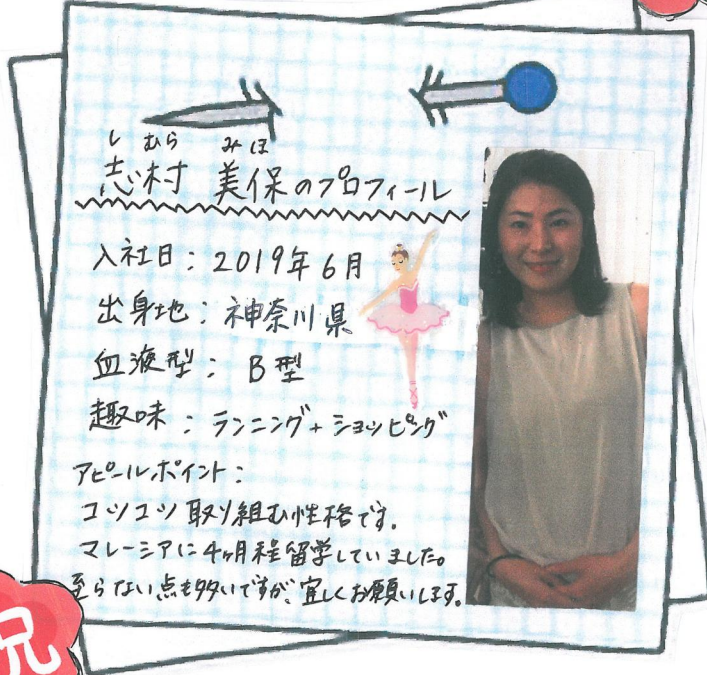 しむら みほ
志村 美保のプロフィール
入社日：2019年6月
出身地：神奈川県
血液型：B型
趣味：ランニング+ショッピング
アピールポイント：
コツコツ取り組む性格です。
マレーシアに4ヶ月程留学していました。
至らない点も多いですが、宜しくお願いします。
祝